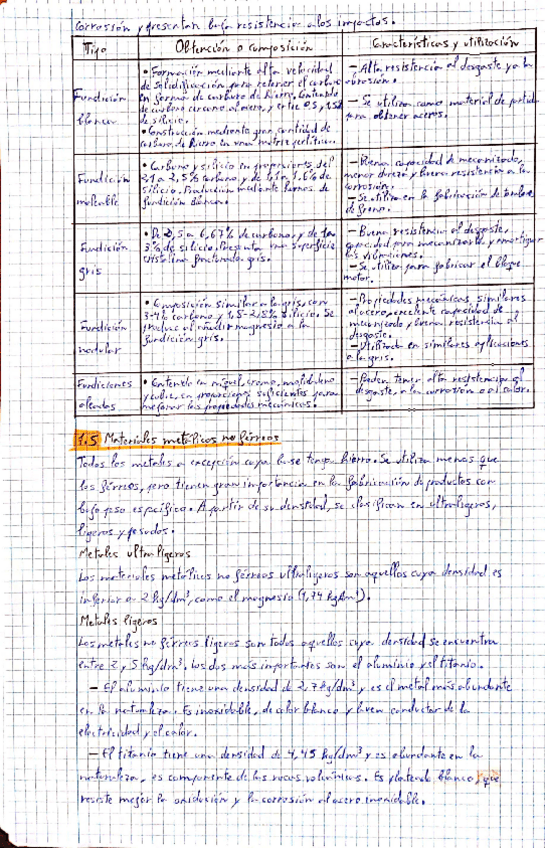 corrosión y presentan baja resistencia a los impactos.
Tipo
Obtención o composición
Características y utilización
Fundición
blanca
• Formación mediante alta velocidad
de solidificación para retener el carbono
en forma de carburo de hierro. Contenido
de carbono cercano al acero, y entre 0,5 y
de silicio.
• Construcción mediante gran cantidad de
carburo de hierro en una matriz perlítica.
– Alta resistencia al desgaste y a la
abrasión.
– Se utiliza como material de partida
para obtener aceros.
Fundición
maleable
• Carbono y silicio en proporciones del
2,1 a 2,5% carbono, y de 1,1 a 1,6% de
silicio. Producción mediante hornos de
fundición blanca.
– Buena capacidad de mecanizado,
menor dureza y buena resistencia a la
corrosión.
– Se utiliza en la fabricación de tambores
de freno.
Fundición
gris
• De 2,5 a 6,67% de carbono, y de
3% de silicio. Presenta una superficie
cristalina fracturada gris.
– Buena resistencia al desgaste,
capacidad para mecanizarla, y amortiguar
las vibraciones.
– Se utiliza para fabricar el bloque
motor.
Fundición
nodular
• Composición similar a la gris, con
3-4% carbono y 1,8-2,8% silicio. Se
produce al añadir magnesio a la
fundición gris.
– Propiedades mecánicas similares
al acero, excelente capacidad de
mecanizado y buena resistencia al
desgaste.
– Utilizada en similares aplicaciones
a la gris.
Fundiciones
aleadas
• Contenido en níquel, cromo, molibdeno
y cobre, en proporciones suficientes para
mejorar las propiedades mecánicas.
– Pueden tener alta resistencia al
desgaste, a la corrosión o al calor.
1.5 Materiales metálicos no férreos
Todos los metales a excepción cuya base tenga hierro. Se utiliza menos que
los férreos, pero tienen gran importancia en la fabricación de productos con
bajo peso específico. A partir de su densidad, se clasifican en ultraligeros,
ligeros y pesados.
Metales ultraligeros
Los materiales metálicos no férreos ultraligeros son aquellos cuya densidad es
inferior a 2 kg/dm³, como el magnesio (1,74 kg/dm³).
Metales ligeros
Los metales no férreos ligeros son todos aquellos cuya densidad se encuentra
entre 2 y 5 kg/dm³. Los dos más importantes son el aluminio y el titanio.
– El aluminio tiene una densidad de 2,7 kg/dm³ y es el metal más abundante
en la naturaleza. Es inoxidable, de color blanco y buen conductor de la
electricidad y el calor.
– El titanio tiene una densidad de 4,45 kg/dm³ y es abundante en la
naturaleza, es componente de las rocas volcánicas. Es plateado blanco, que
resiste mejor la oxidación y la corrosión al acero inoxidable.